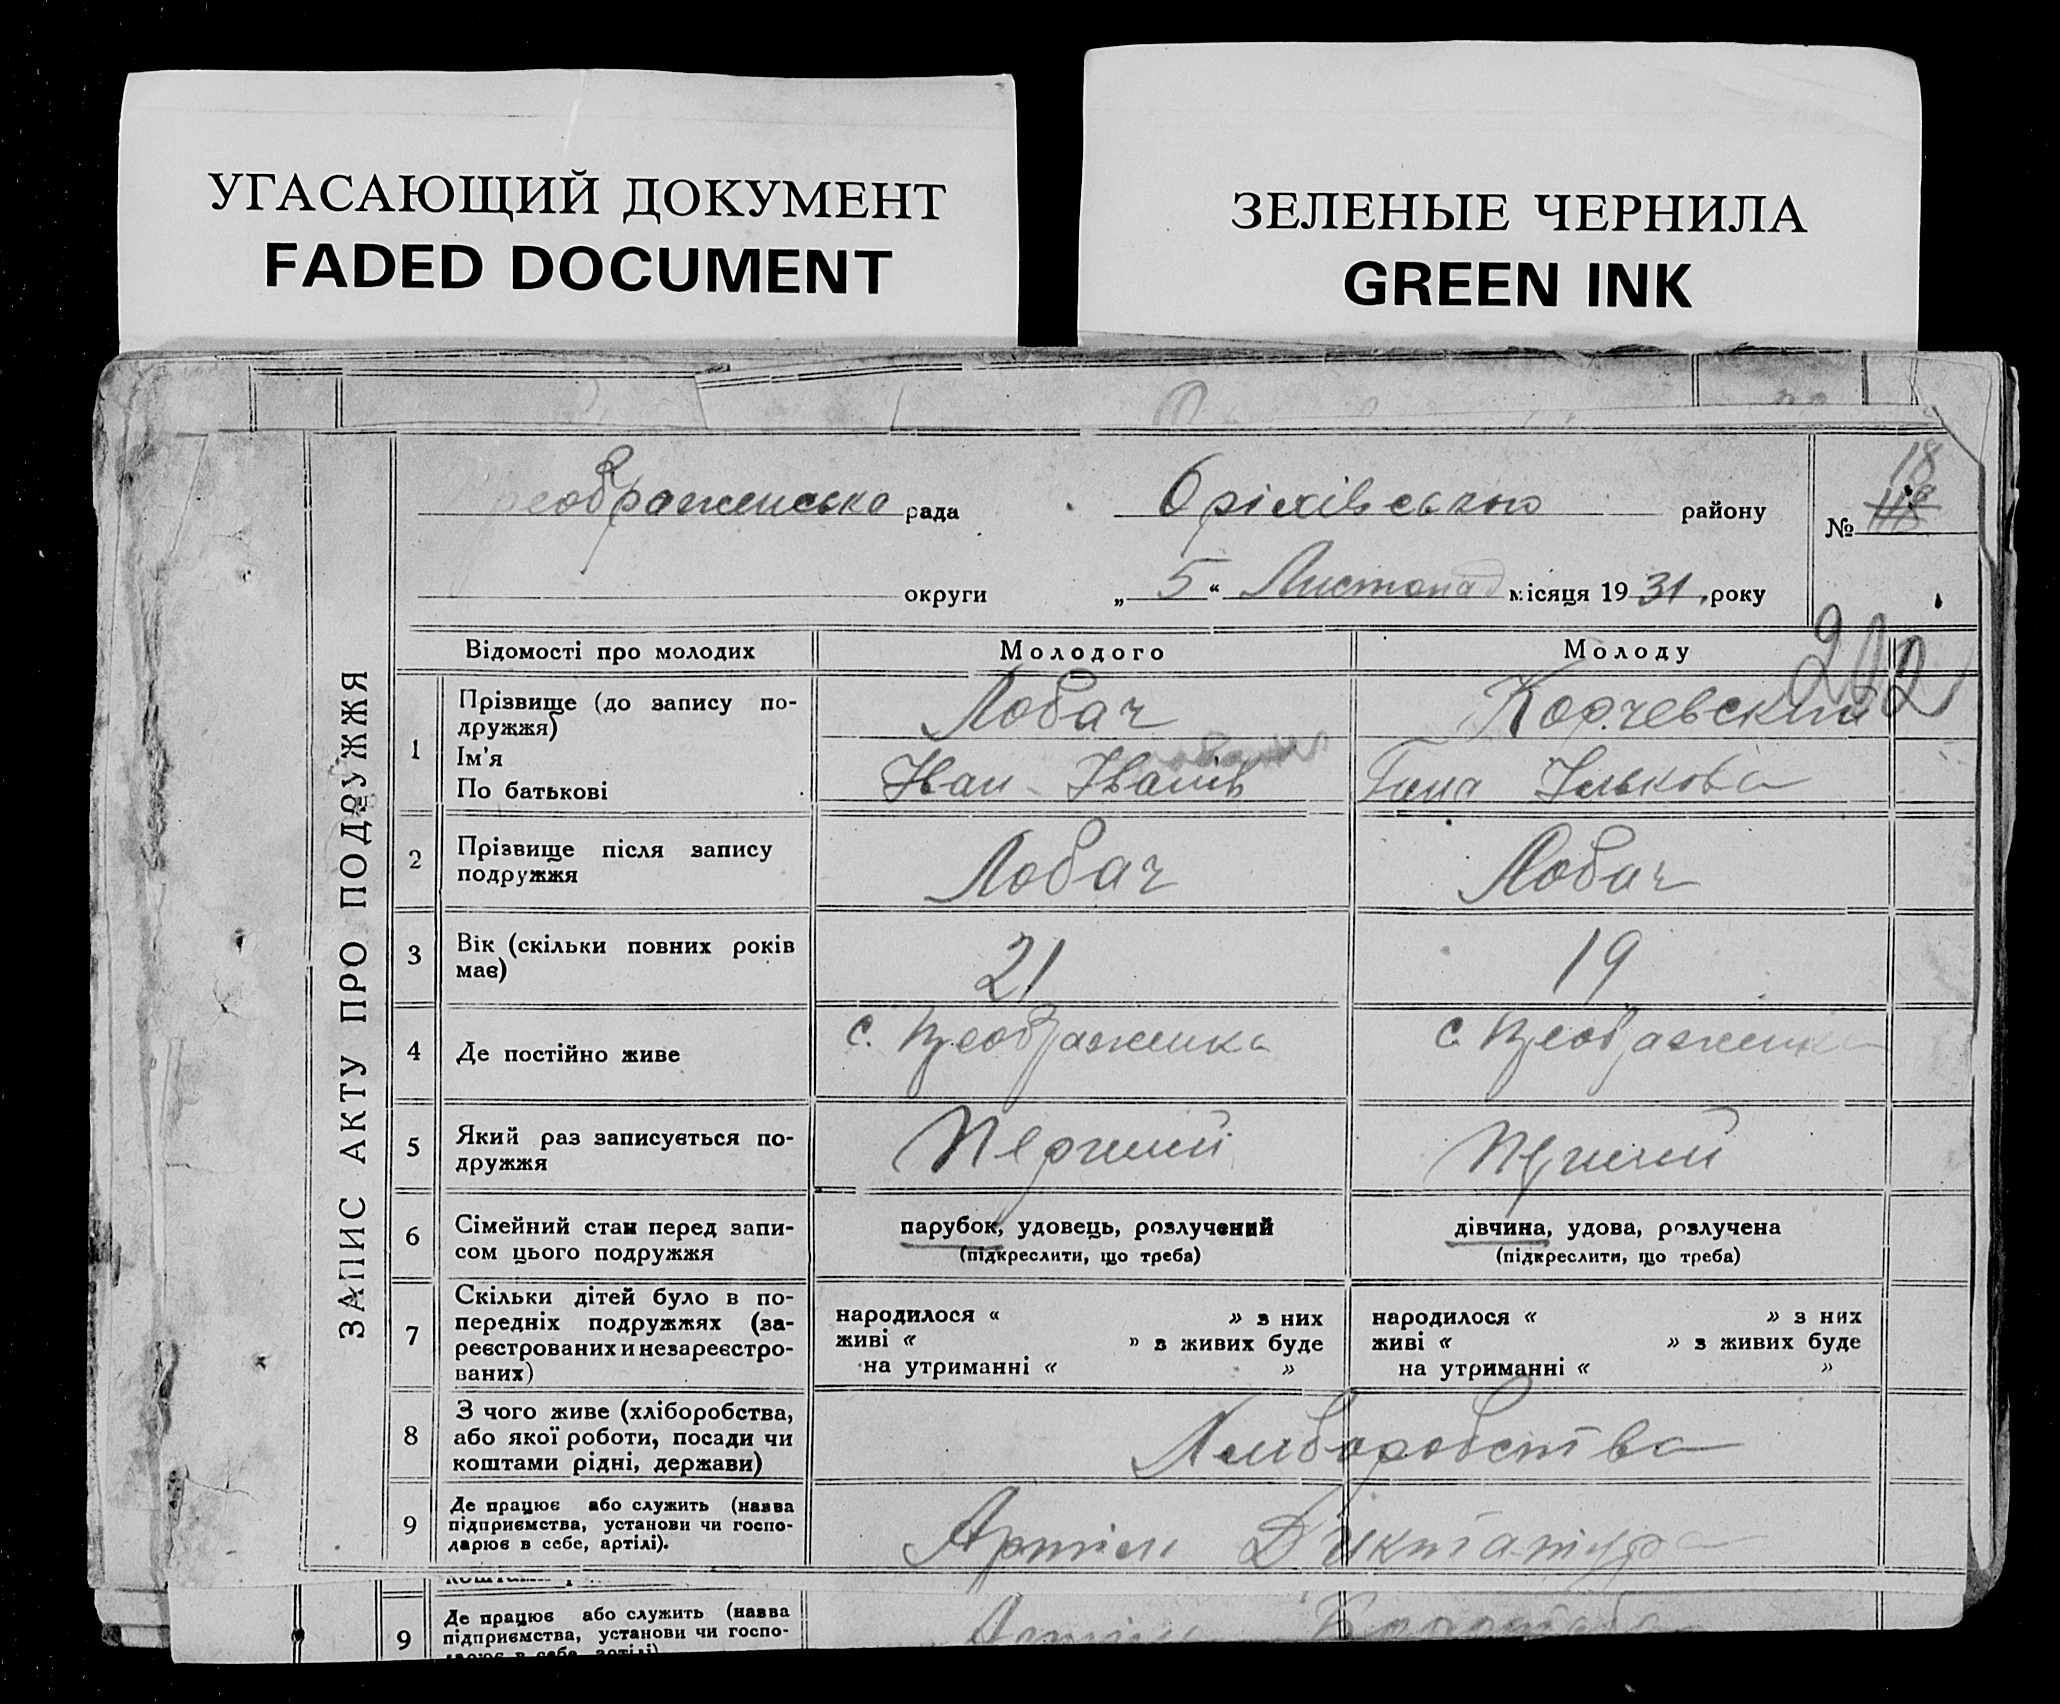 УГАСАЮЩИЙ ДОКУМЕНТ
FADED DOCUMENT
ЗЕЛЕНЫЕ ЧЕРНИЛА
GREEN INK
ЗАПИС АКТУ ПРО ПОДРУЖЖЯ
реображенська рада Оріхівського району № 18
округи „ 5 “ Листопад місяця 1931 року
202
Відомості про молодих Молодого Молоду
1 Прізвище (до запису по-
дружжя) Лобач Корчевский
Ім'я
По батькові Іван Іванів Ганна Ількова
2 Прізвище після запису
подружжя Лобач Лобач
3 Вік (скільки повних років
має) 21 19
4 Де постійно живе с. Преображенка с. Преображенка
5 Який раз записується по-
дружжя Перший Перший
6 Сімейний стан перед запи-
сом цього подружжя
парубок, удовець, розлучений
(підкреслити, що треба)
дівчина, удова, розлучена
(підкреслити, що треба)
7 Скільки дітей було в по-
передніх подружжях (за-
реєстрованих и незареєстро-
ваних)
народилося « » з них
живі « » з живих буде
на утриманні « »
народилося « » з них
живі « » з живих буде
на утриманні « »
8 З чого живе (хліборобства,
або якої роботи, посади чи
коштами рідні, держави)
Хліборобства
9 Де працює або служить (назва
підприємства, установи чи госпо-
дарює в себе, артілі).
Артіль Диктатура
9 Де працює або служить (назва
підприємства, установи чи госпо-
дарює в себе, артілі)
Артіль